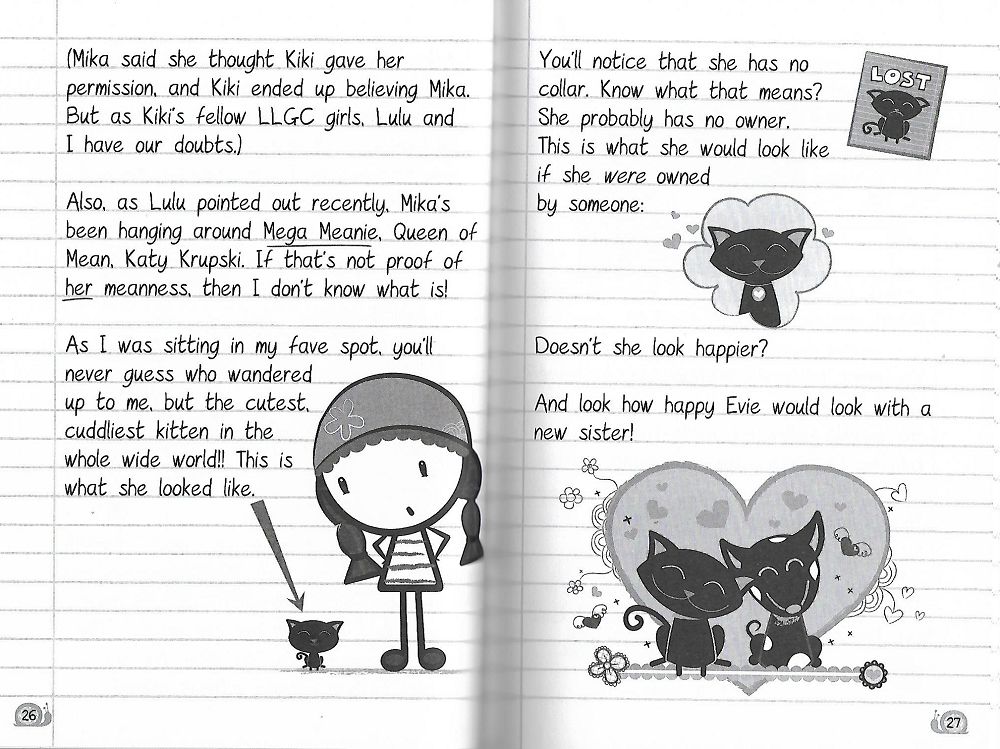 (Mika said she thought Kiki gave her
permission, and Kiki ended up believing Mika.
But as Kiki's fellow LLGC girls, Lulu and
I have our doubts.)
Also, as Lulu pointed out recently, Mika's
been hanging around Mega Meanie, Queen of
Mean, Katy Krupski. If that's not proof of
her meanness, then I don't know what is!
As I was sitting in my fave spot, you'll
never guess who wandered
up to me, but the cutest,
cuddliest kitten in the
whole wide world!! This is
what she looked like.
26
You'll notice that she has no
collar. Know what that means?
She probably has no owner.
This is what she would look like
if she were owned
by someone:
LOST
Doesn't she look happier?
And look how happy Evie would look with a
new sister!
27